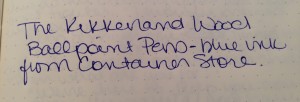 The Kikkerland Wood
Ballpoint Pens - blue ink
from Container Store.